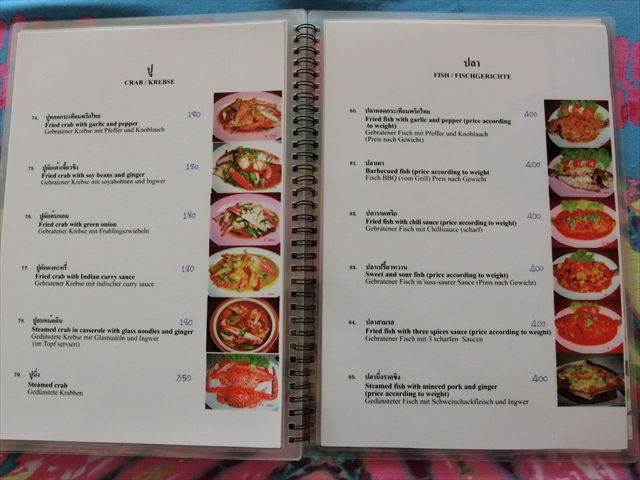 ปู
CRAB / KREBSE
74. ปูทอดกระเทียมพริกไทย 180
Fried crab with garlic and pepper
Gebratener Krebse mit Pfeffer und Knoblauch
75. ปูผัดเต้าเจี้ยวขิง 180
Fried crab with soy beans and ginger
Gebratener Krebse mit soyabohnen und Ingwer
76. ปูผัดต้นหอม 180
Fried crab with green onion
Gebratener Krebse mit Fruhlingszwiebeln
77. ปูผัดผงกะหรี่ 180
Fried crab with Indian curry sauce
Gebratener Krebse mit indischer curry sauce
78. ปูอบหม้อดิน 180
Steamed crab in casserole with glass noodles and ginger
Gedünstete Krebse mit Glasnudeln und Ingwer
(im Topf serviert)
79. ปูนึ่ง 350
Steamed crab
Gedünstete Krabben
ปลา
FISH / FISCHGERICHTE
80. ปลาทอดกระเทียมพริกไทย 400
Fried fish with garlic and pepper (price according
to weight)
Gebratener Fisch mit Pfeffer und Knoblauch
(Preis nach Gewicht)
81. ปลาเผา 400
Barbecued fish (price according to weight
Fisch BBQ (vom Grill) Preis nach Gewicht
82. ปลาราดพริก 400
Fried fish with chili sauce (price according to weight)
Gebratener Fisch mit Chillisauce (scharf)
83. ปลาเปรี้ยวหวาน 400
Sweet and sour fish (price according to weight)
Gebratener Fisch in suss-saurer Sauce (Preis nach Gewicht)
84. ปลาสามรส 400
Fried fish with three spices sauce (price according to weight)
Gebratener Fisch mit 3 scharfen Saucen
85. ปลานึ่งราดขิง 400
Steamed fish with minced pork and ginger
(price according to weight)
Gedünsteter Fisch mit Schweinchackfleisch und Ingwer